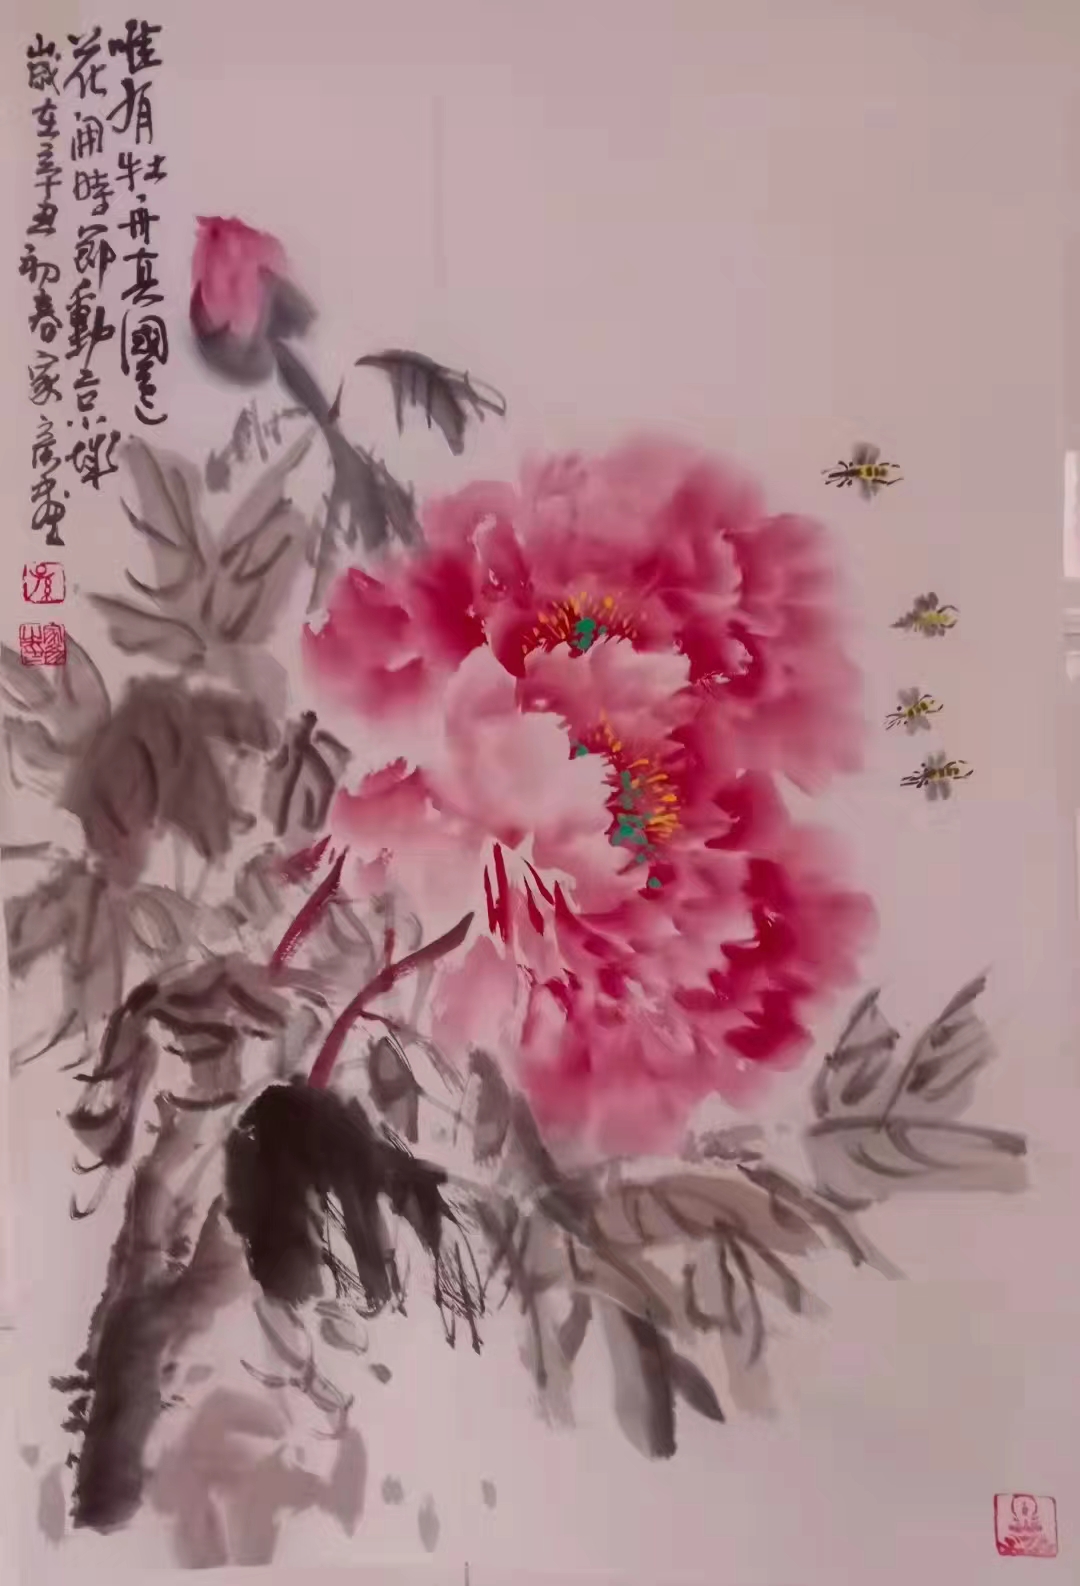 唯有牡丹真國色
花開時節動京城
歲在辛丑初春家彦畫